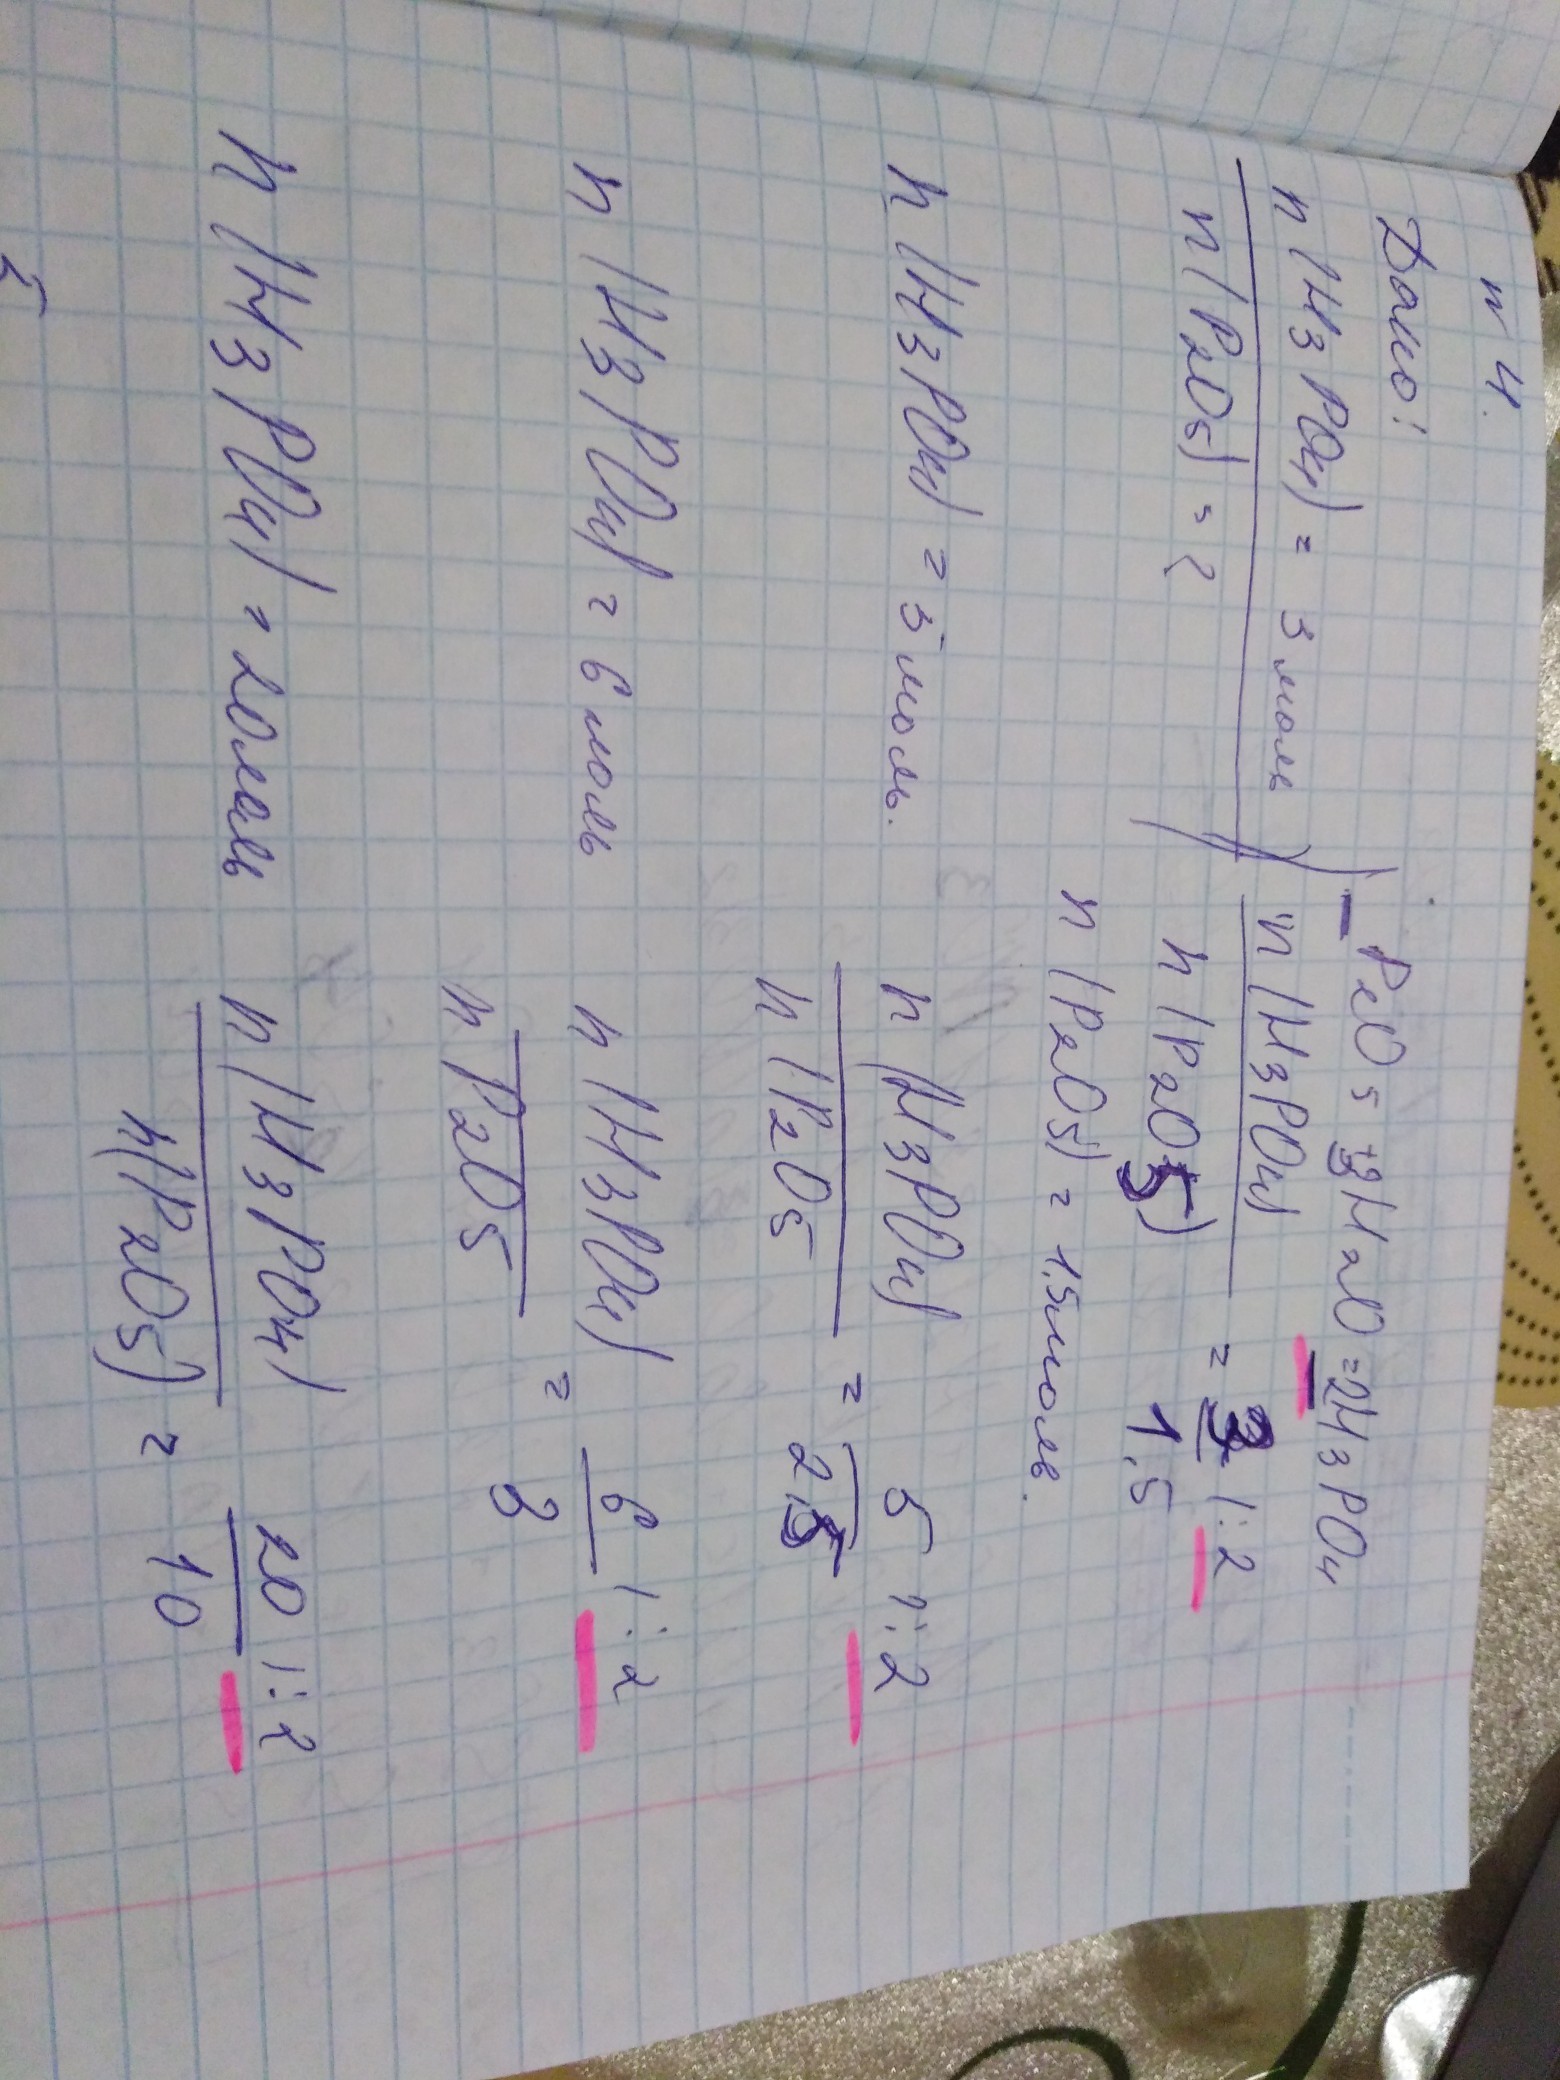 n 4.
Дано:
n (H3PO4) = 3 моль
n (P2O5) = ?
P2O5 + 3H2O = 2H3PO4
n (H3PO4)
n (P2O5)
= 3 1:2
1,5
n (P2O5) = 1,5 моль.
n (H3PO4) = 5 моль.
n (H3PO4)
n (P2O5
= 5 1:2
2,5
n (H3PO4) = 6 моль
n (H3PO4)
n P2O5
= 6 1:2
3
n (H3PO4) = 20 моль
n (H3PO4)
n (P2O5)
= 20 1:2
10